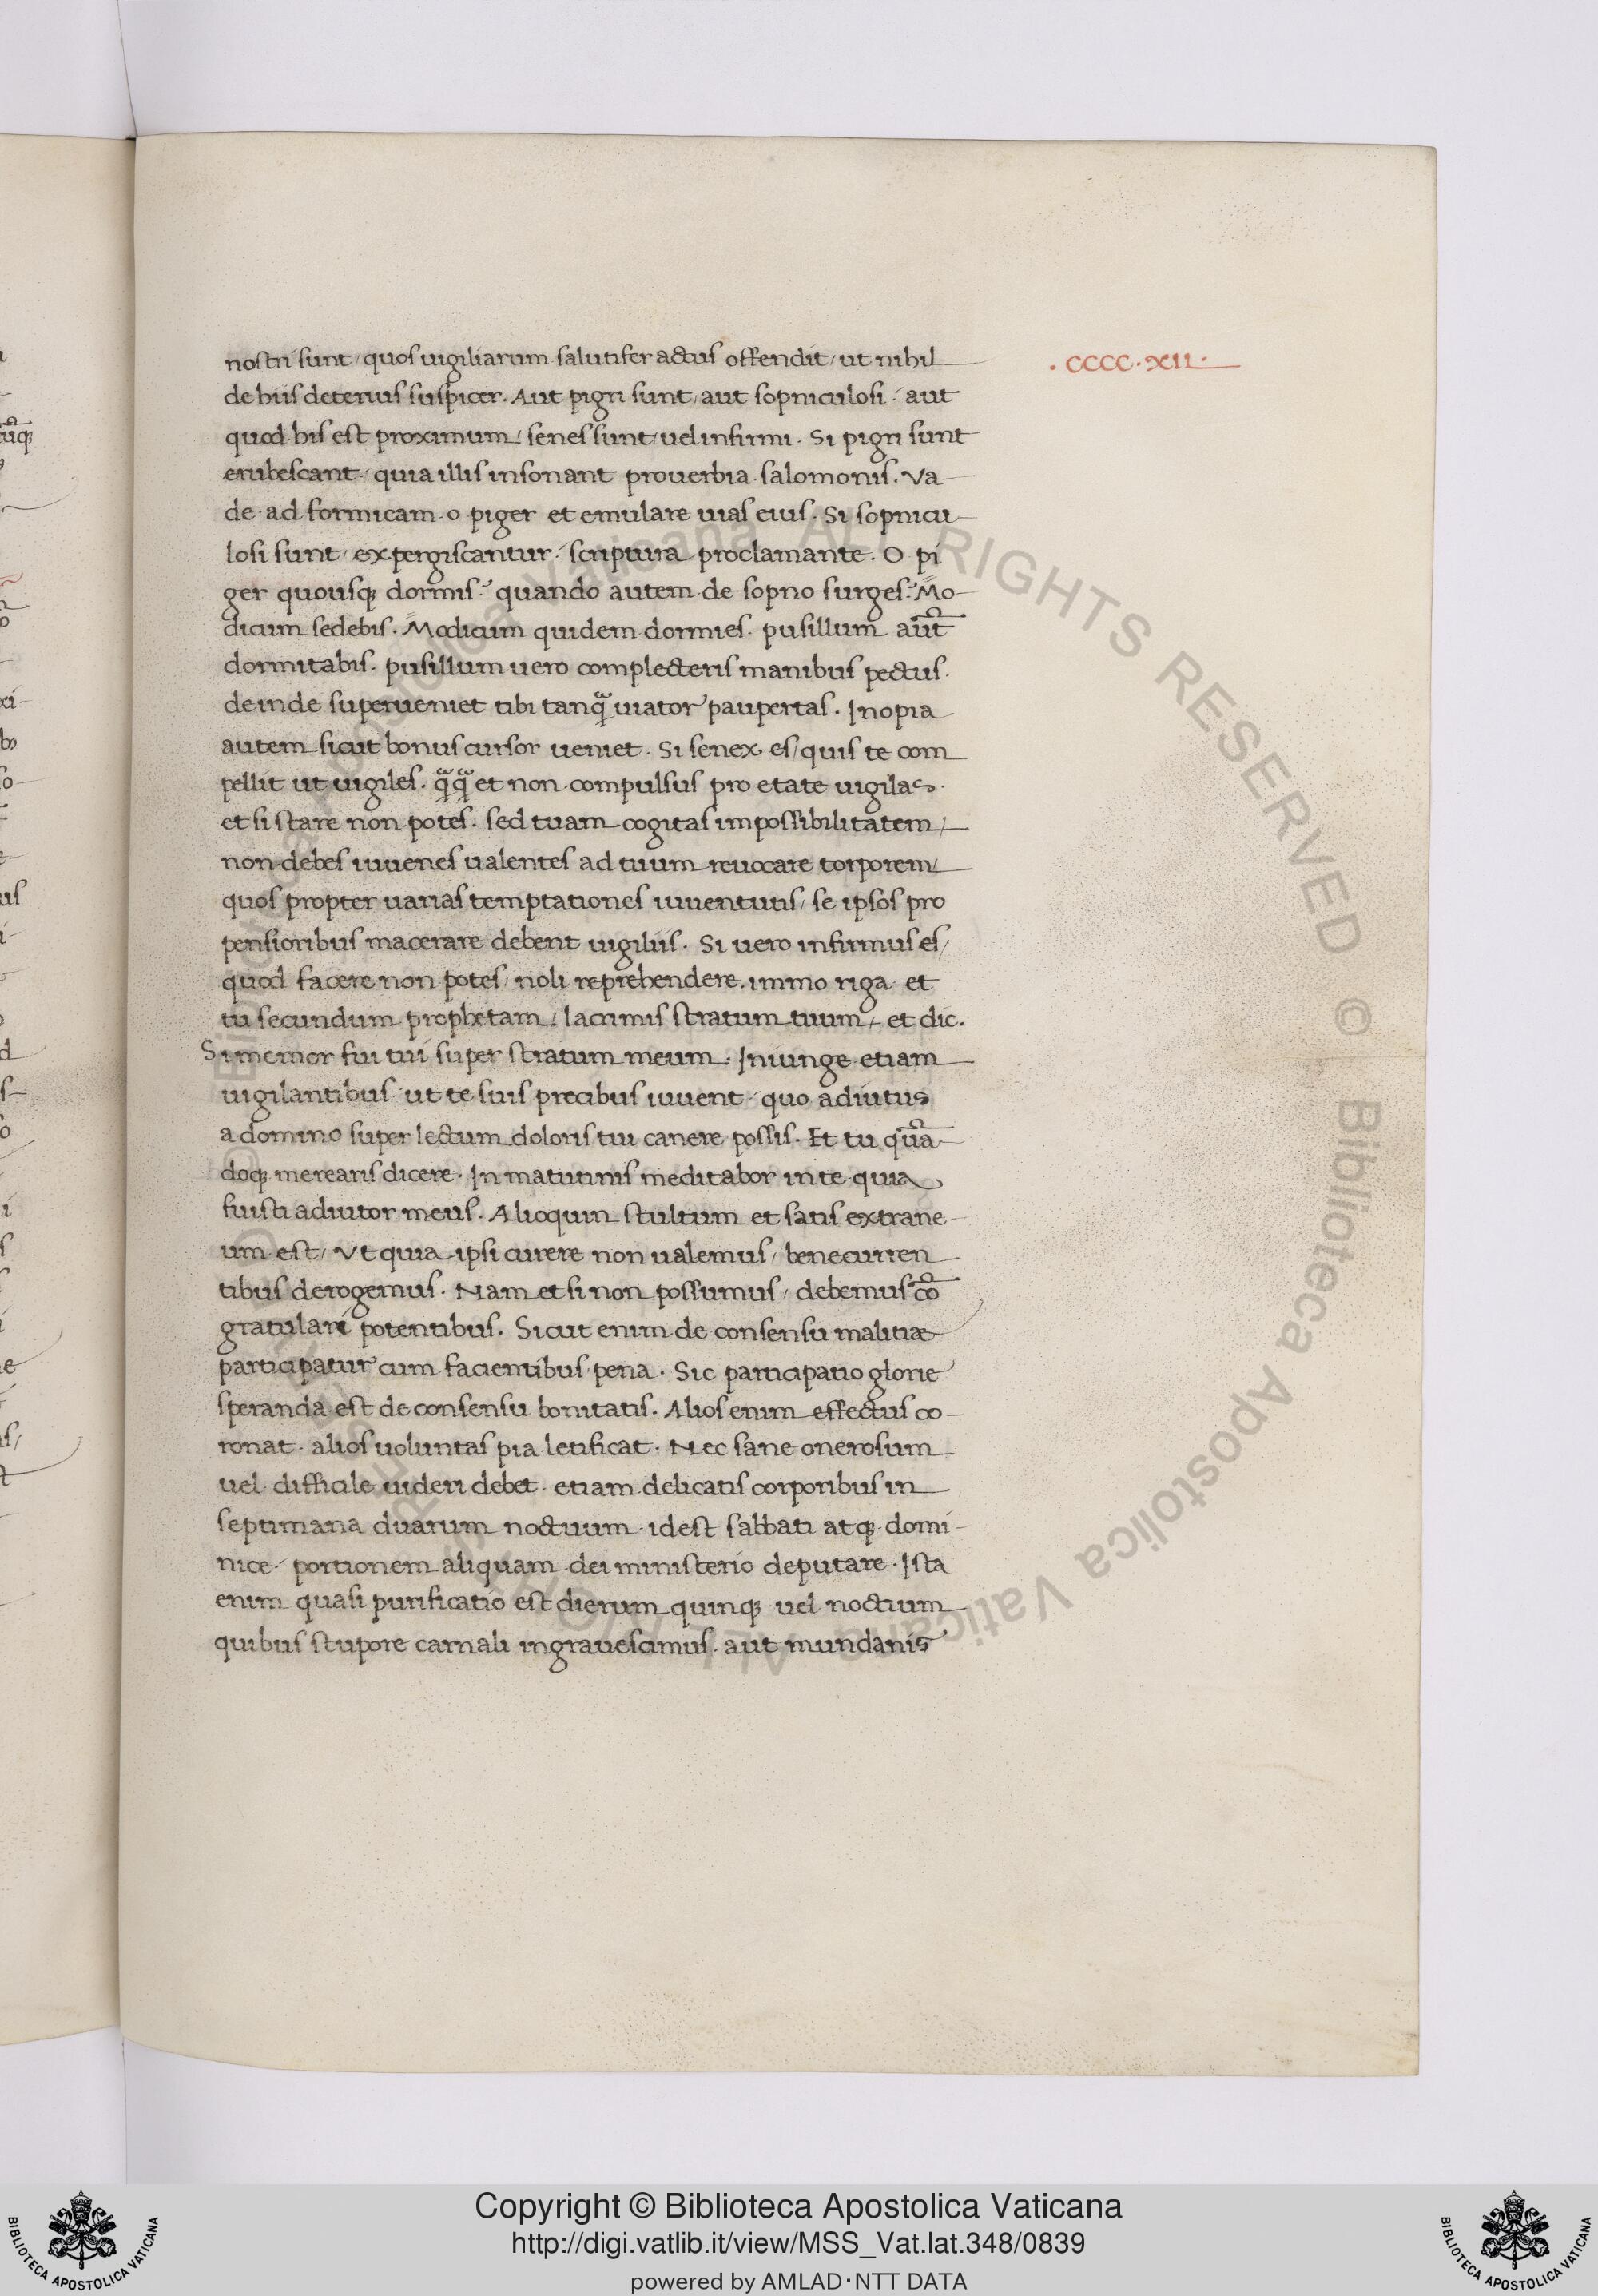 nostri sunt / quos uigiliarum salutifer actus offendit / ut nihil
.CCCC.XII.
de hiis deterius suspicer. Aut pigri sunt / aut sopniculosi / aut
quod his est proximum / senes sunt uel infirmi. Si pigri sunt
erubescant / quia illis insonant prouerbia salomonis. Va-
de ad formicam o piger et emulare uias eius. Si sopnicu-
losi sunt / expergiscantur / scriptura proclamante. O pi
ger quousq; dormis? quando autem de sopno surges? Mo-
dicum sedebis. Modicum quidem dormies. pusillum aut̄
dormitabis. pusillum uero complecteris manibus pectus.
deinde superueniet tibi tanq̃ uiator paupertas. Inopia
autem sicut bonus cursor ueniet. Si senex es / quis te com
pellit ut uigiles. q̃q̃ et non compulsus pro etate uigilas.
et si stare non potes. sed tuam cogitas impossibilitatem /
non debes iuuenes ualentes ad tuum reuocare torporem /
quos propter uarias temptationes iuuentutis / se ipsos pro
pensioribus macerare debent uigiliis. Si uero infirmus es /
quod facere non potes / noli reprehendere. immo riga et
tu secundum prophetam / lacrimis stratum tuum / et dic.
Si memor fui tui super stratum meum. Iniunge etiam
uigilantibus ut te suis precibus iuuent / quo adiutus
a domino super lectum doloris tui canere possis. Et tu quā-
doq; merearis dicere. In matutinis meditabor in te quia
fuisti adiutor meus. Alioquin stultum et satis extrane-
um est / Vt quia ipsi curere non ualemus / bene curren
tibus derogemus. Nam et si non possumus / debemus cō
gratulari potentibus. Sicut enim de consensu malitiæ
participatur cum facientibus pena. Sic participatio glorie
speranda est de consensu bonitatis. Alios enim effectus co-
ronat. alios uoluntas pia letificat. Nec sane onerosum
uel difficile uideri debet etiam delicatis corporibus in
septimana duarum noctuum idest sabbati atq; domi-
nice / portionem aliquam dei ministerio deputare. Ista
enim quasi purificatio est dierum quinq; uel noctium
quibus stupore carnali ingrauescimus. aut mundanis
Copyright © Biblioteca Apostolica Vaticana
http://digi.vatlib.it/view/MSS_Vat.lat.348/0839
powered by AMLAD·NTT DATA
BIBLIOTECA APOSTOLICA VATICANA
BIBLIOTECA APOSTOLICA VATICANA